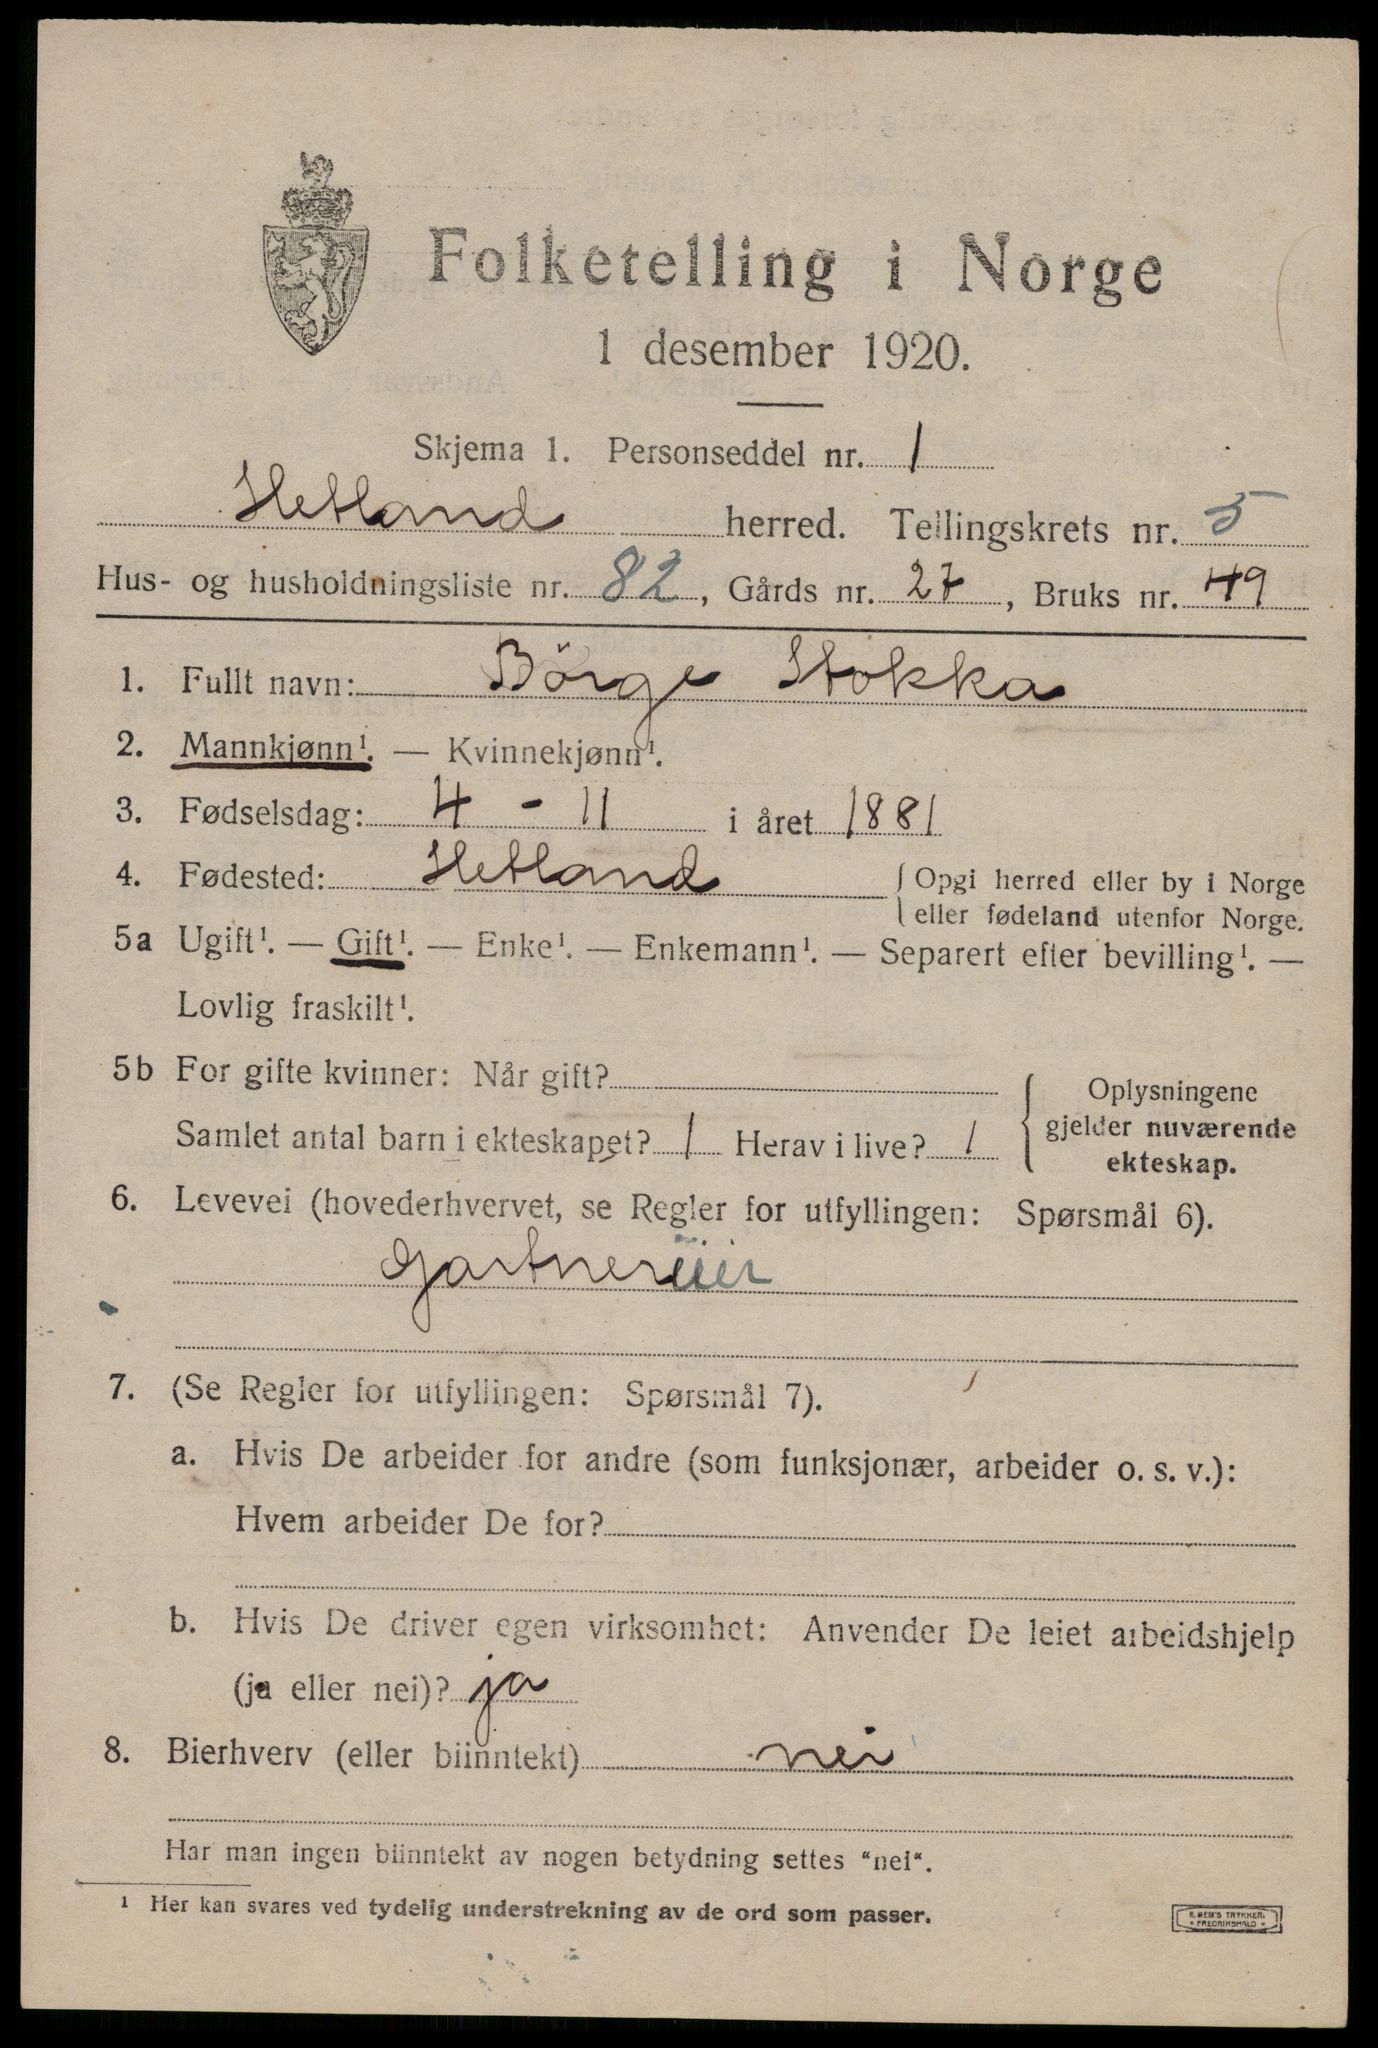 Folketelling i Norge
1 desember 1920.
Skjema 1. Personseddel nr. 1
Hetland herred. Tellingskrets nr. 5
Hus- og husholdningsliste nr. 82, Gårds nr. 27, Bruks nr. 49
1. Fullt navn: Börge Stokka
2. Mannkjønn¹. — Kvinnekjønn¹.
3. Fødselsdag: 4 - 11 i året 1881
4. Fødested: Hetland { Opgi herred eller by i Norge
eller fødeland utenfor Norge.
5a Ugift¹. — Gift¹. — Enke¹. — Enkemann¹. — Separert efter bevilling¹. —
Lovlig fraskilt¹.
5b For gifte kvinner: Når gift?
Samlet antal barn i ekteskapet? 1 Herav i live? 1
{ Oplysningene
gjelder nuværende
ekteskap.
6. Levevei (hovederhvervet, se Regler for utfyllingen: Spørsmål 6).
Gartnereier
7. (Se Regler for utfyllingen: Spørsmål 7).
a. Hvis De arbeider for andre (som funksjonær, arbeider o. s. v.):
Hvem arbeider De for?
b. Hvis De driver egen virksomhet: Anvender De leiet arbeidshjelp
(ja eller nei)? ja
8. Bierhverv (eller biinntekt) nei
Har man ingen biinntekt av nogen betydning settes "nei".
¹ Her kan svares ved tydelig understrekning av de ord som passer.
E. SEM'S TRYKKERI
FREDRIKSHALD